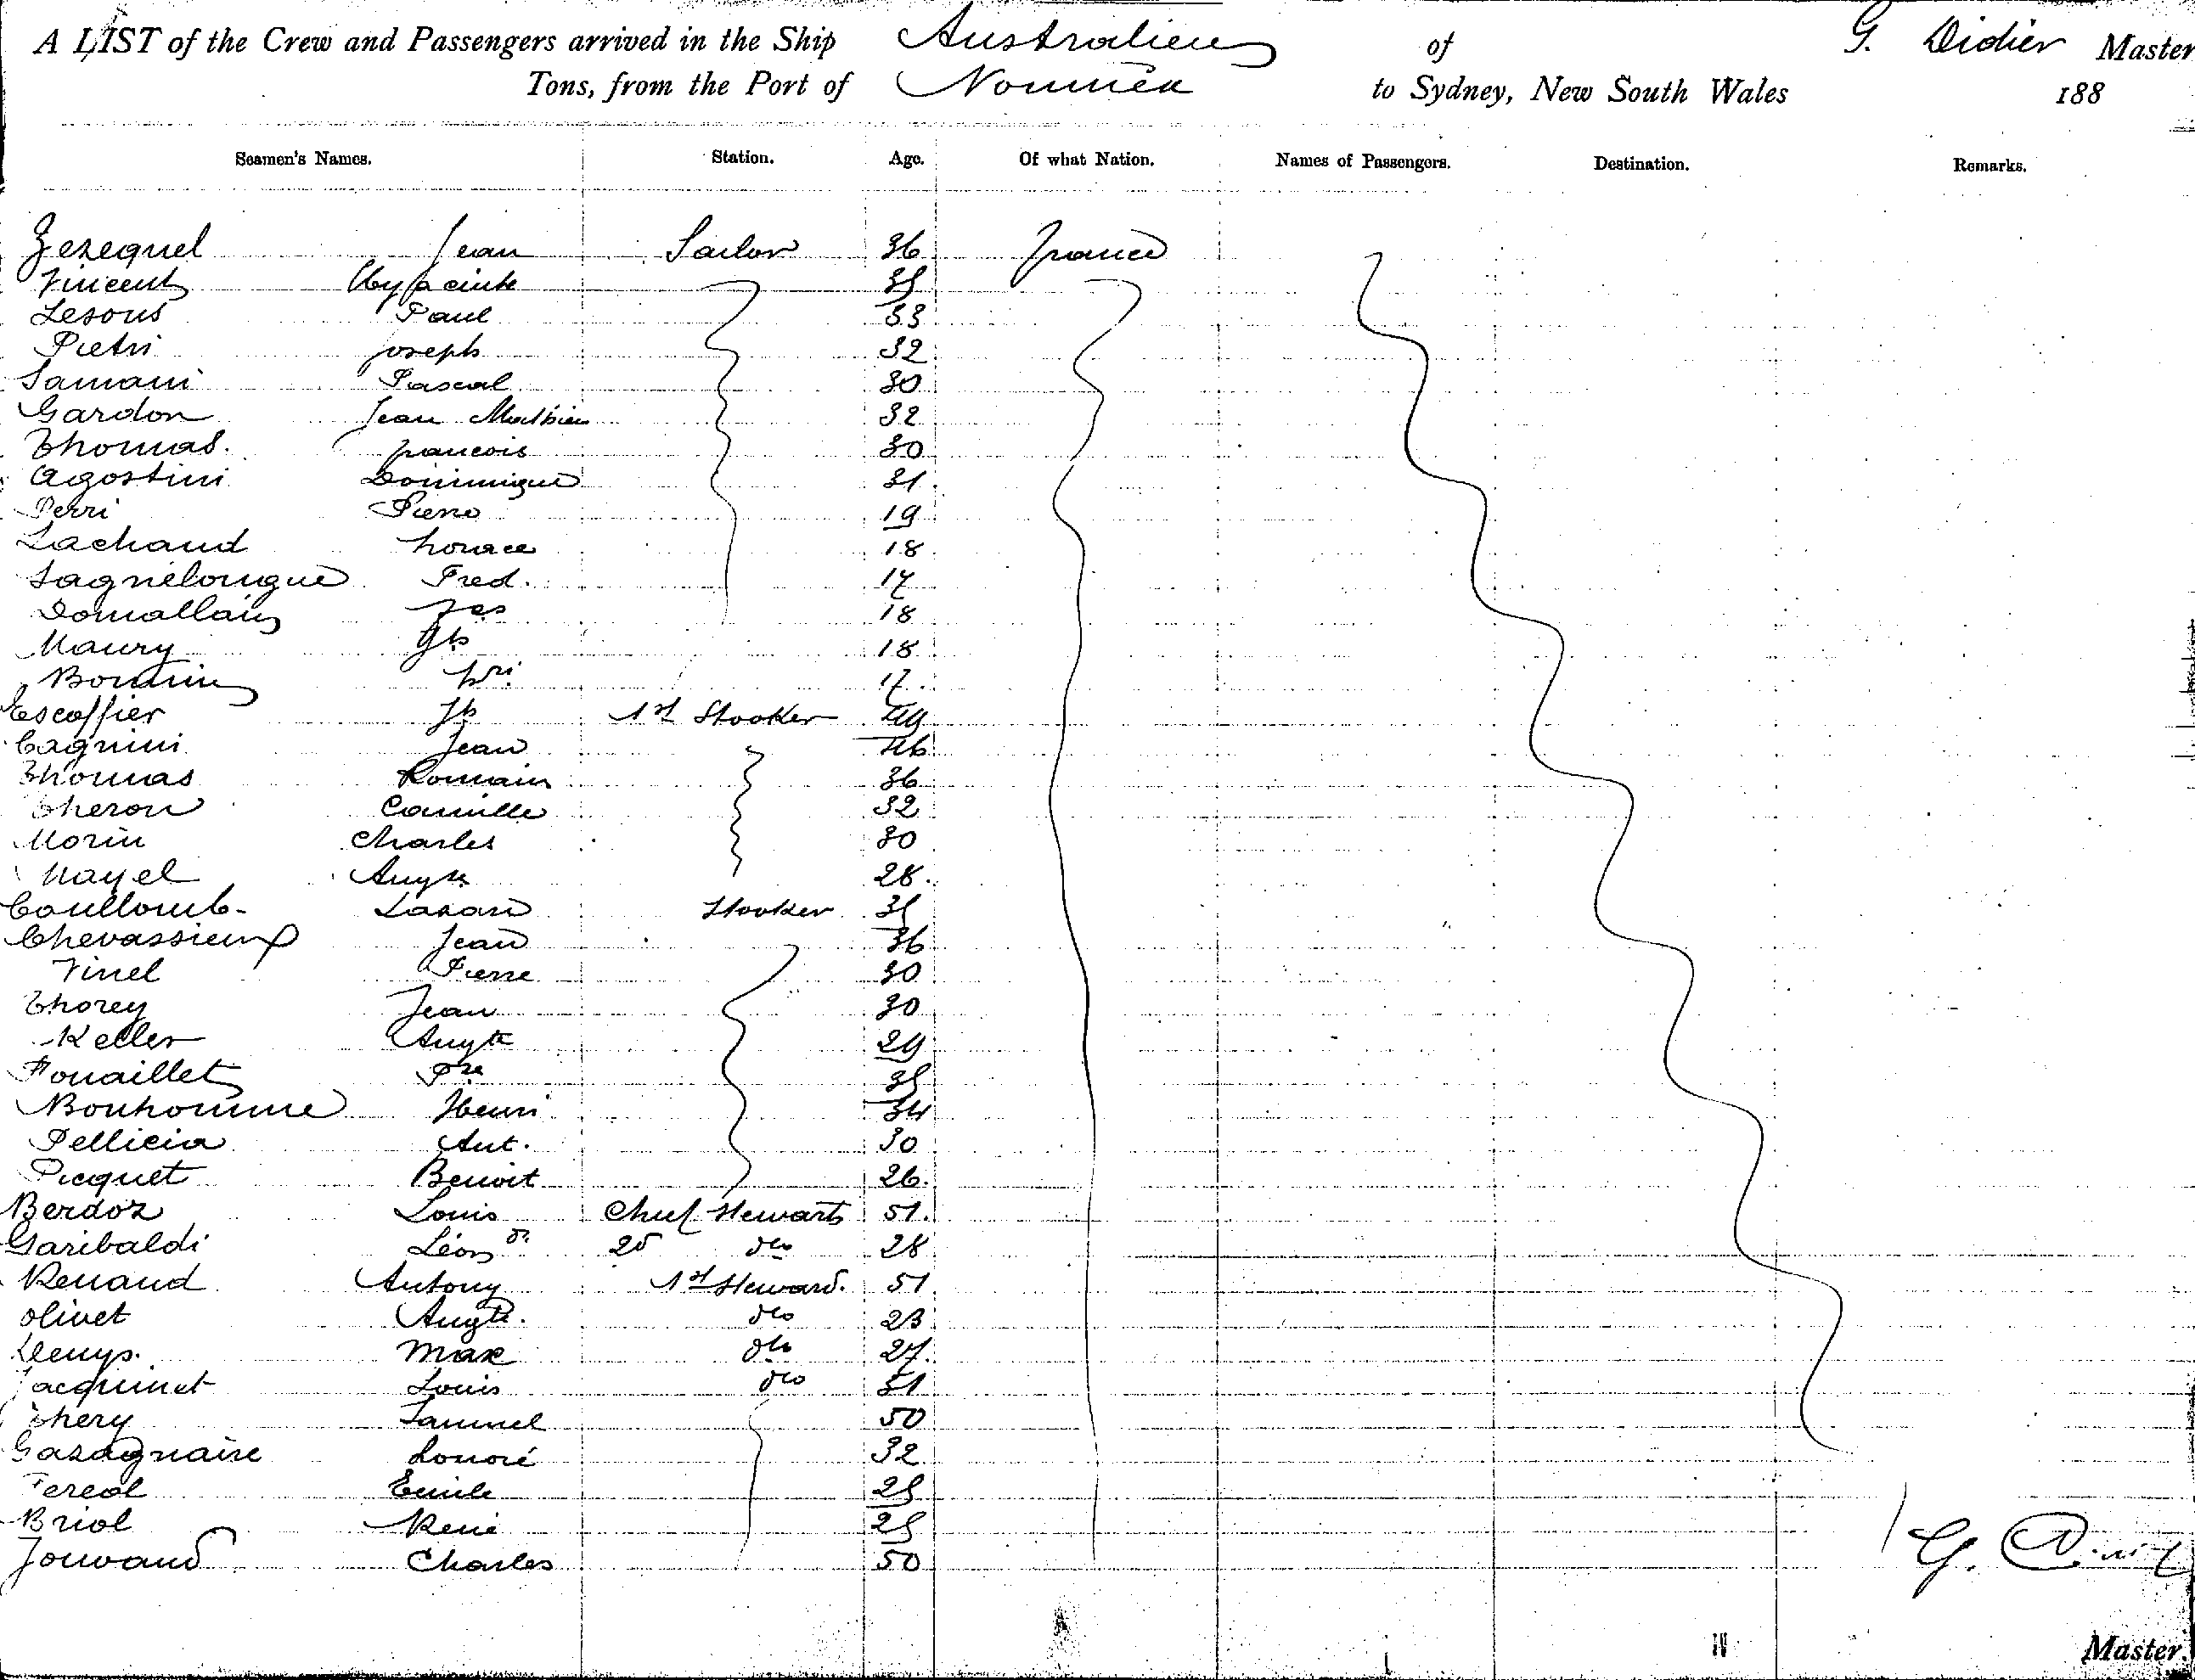 A LIST of the Crew and Passengers arrived in the Ship Australien of G. Didier Master
Tons, from the Port of Nouméa to Sydney, New South Wales 188
Seamen's Names. Station. Age. Of what Nation. Names of Passengers. Destination. Remarks.
Jezequel Jean Sailor 36 France
Vincent Hyacinte 35
Lesous Paul 33
Pietri Joseph 32
Samani Pascal 30
Gardon Jean Mathieu 32
Thomas. Francois 30
Agostini Dominique 31
Perri Pierre 19
Lachaud horace 18
Lagnélongue Fred. 17
Domallain 18
Maury Jh 18
hri 17
Escoffier Jh 1st Stooker 49
Cagnini Jean 46
Thomas Romain 36
Theron Camille 32
Morin Charles 30
Mayel Augte 28
Coullomb- Lazare Stooker 35
Chevassieux Jean 36
Vinel Pierre 30
Thorey Jean 30
Keller Augte 29
Fouaillet Pre 35
Bonhomme Henri 34
Pellicia Ant. 30
Picquet Benoit 26
Berdoz Louis Chief Stewart 51
Garibaldi Léon 2d do 28
Renaud Antony 1st Steward. 51
Olivet Augte. do 23
Denys. Max do 27
Jacquinet Louis do 51
Thery Samuel 50
Gasagnaire honoré 32
Fereol Emile 25
Briol René 25
Jouvaud Charles 50
G.
Master.